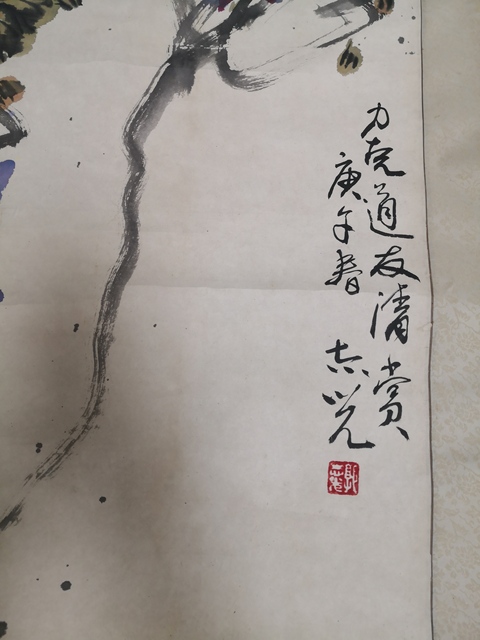 力克道友清赏
庚午春 志光